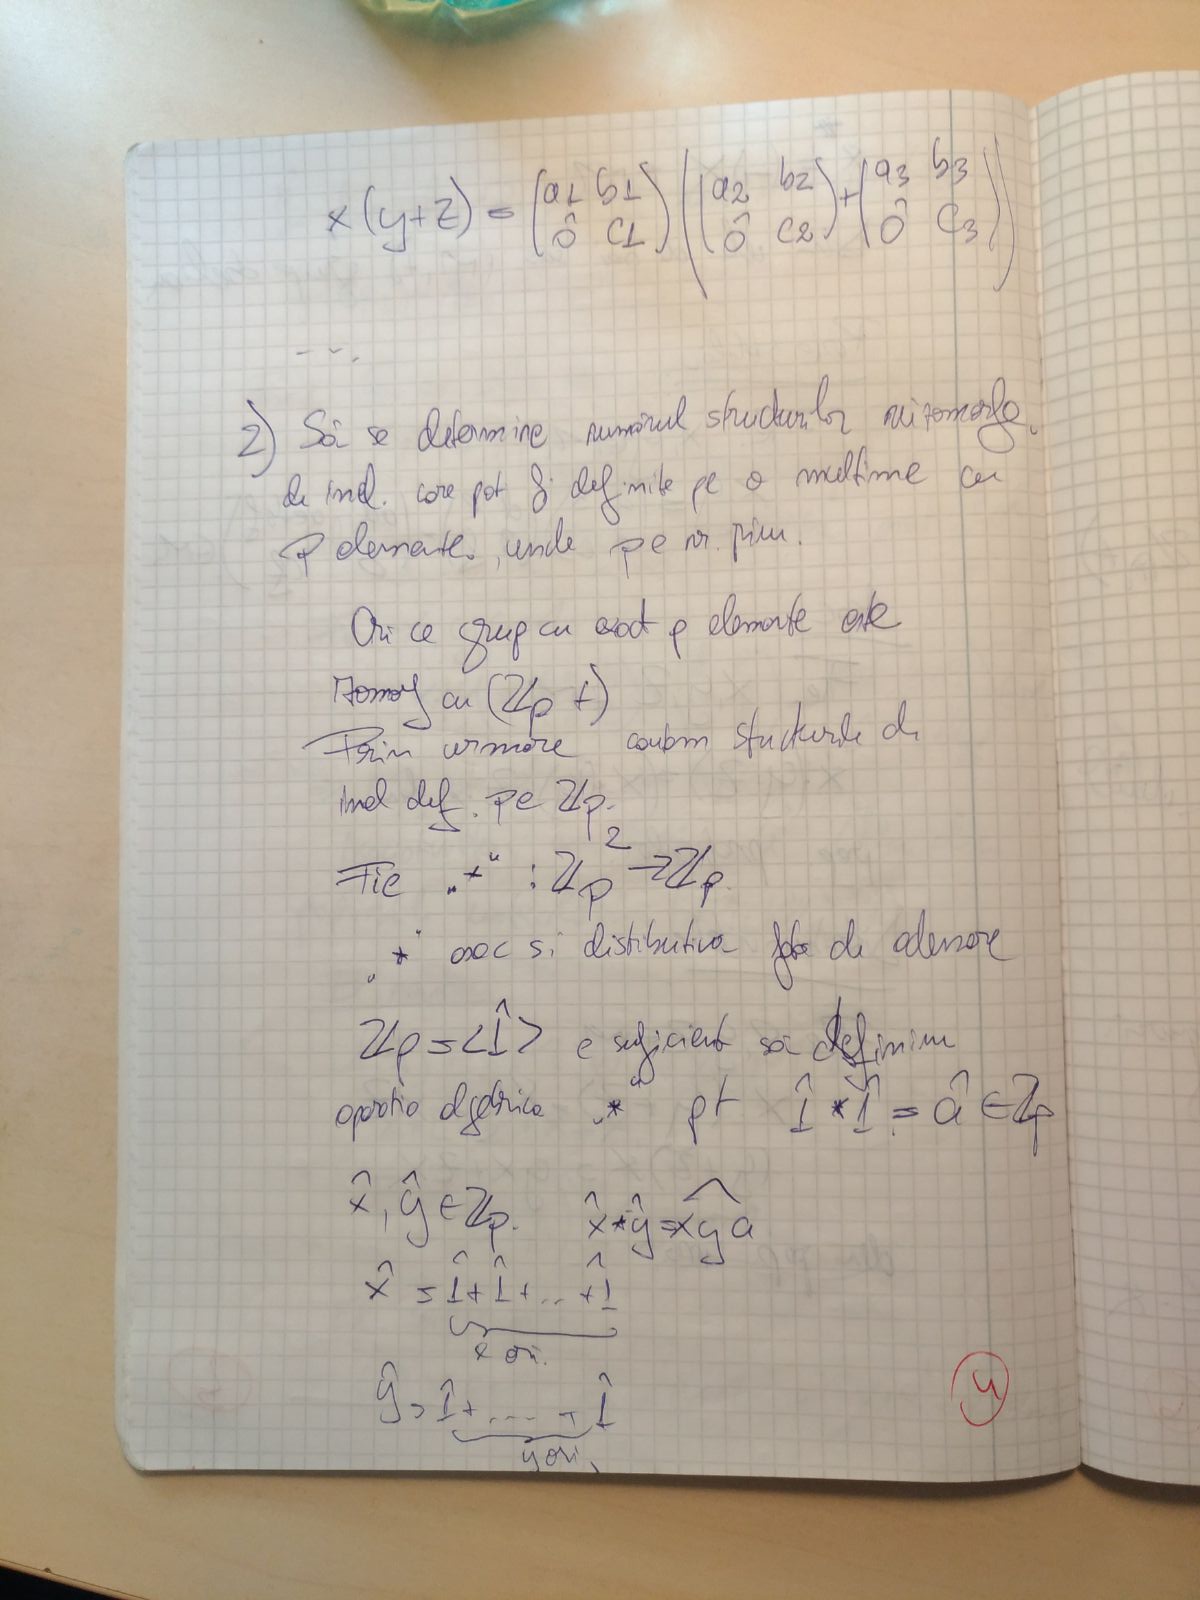 x(y+z) = (a1 b1 0̂ c1) ((a2 b2 0̂ c2) + (a3 b3 0̂ c3))
---.
2) Să se determine numărul structurilor neizomorfe
de inel. care pot fi definite pe o multime cu
p elemente, unde p e nr. prim.
Ori ce grup cu exact p elemente este
izomorf cu (ℤp +)
Prin urmare cautam structurile de
inel def. pe ℤp.
Fie „*" : ℤp² → ℤp
„*" asoc si distributiva fata de adunare
ℤp = <1̂> e suficient să definim
operatia algebrica „*" pt 1̂ * 1̂ = â ∈ ℤp
x̂, ŷ ∈ ℤp. x̂ * ŷ = x̂ŷâ
x̂ = 1̂ + 1̂ + ... + 1̂
x ori.
ŷ = 1̂ + .... + 1̂
y ori.
4